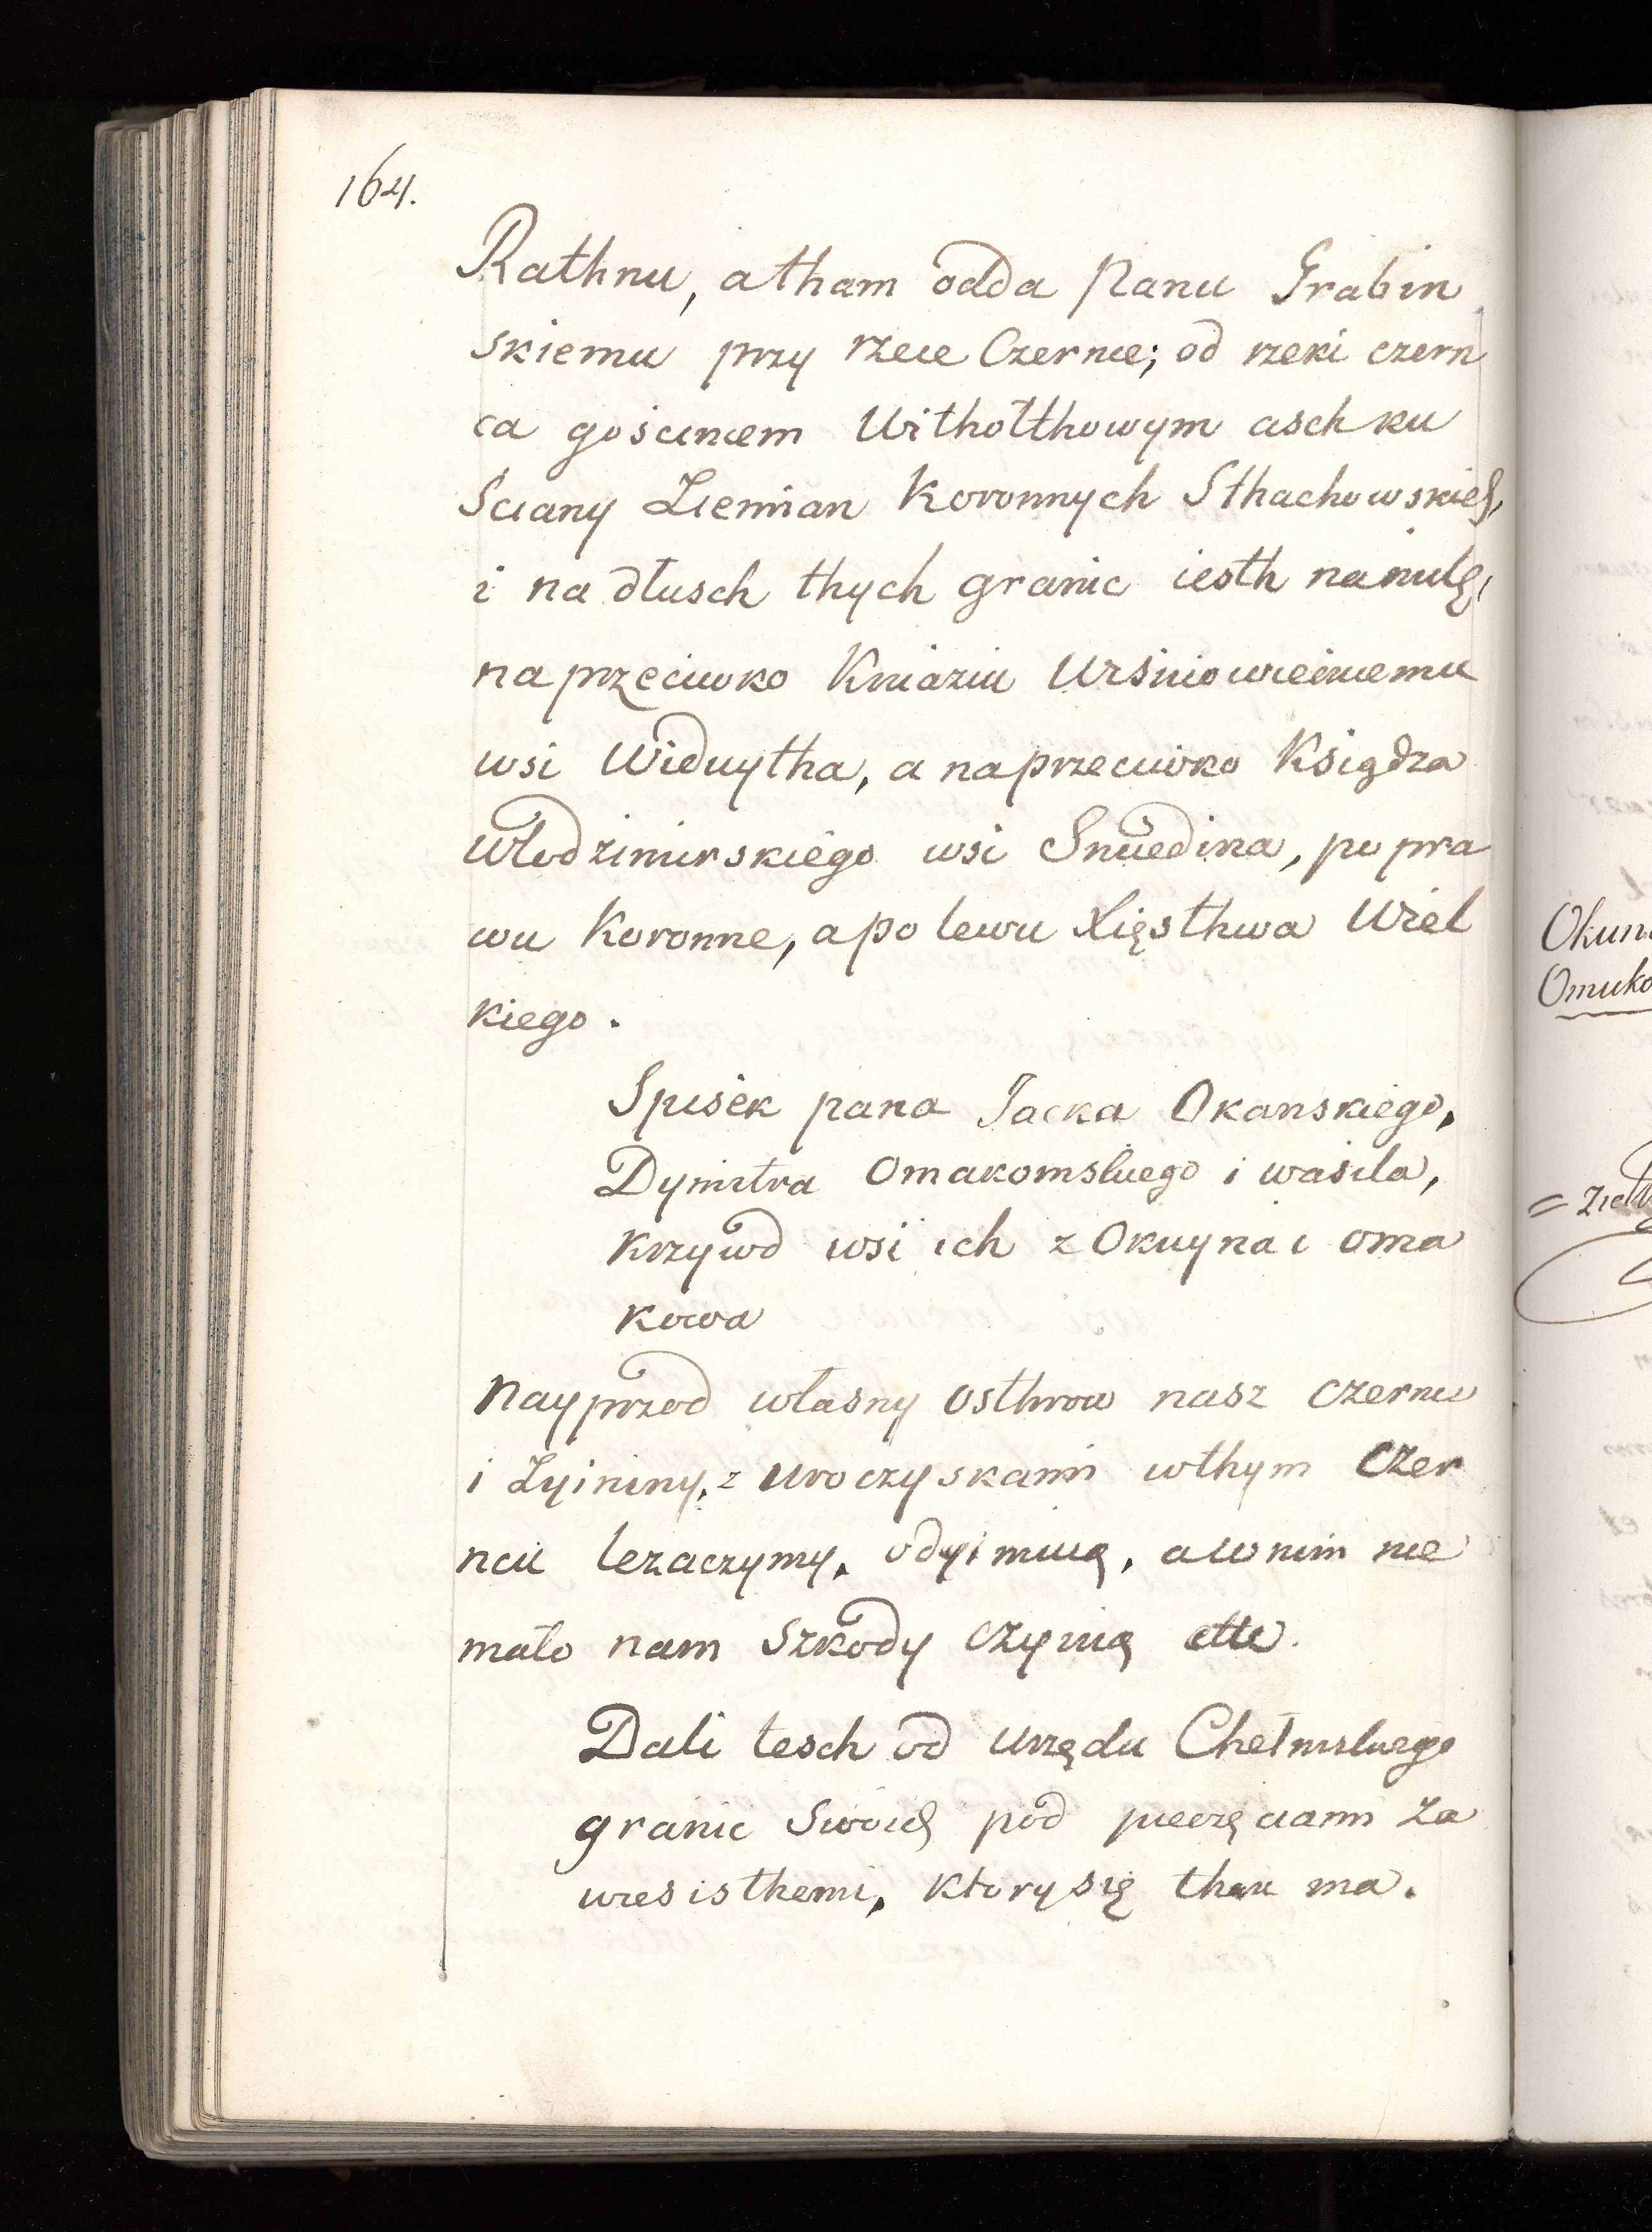 164.
Rathnu, atham odda Panu Grabin
skiemu przy rzece Czernce; od rzeki czern
ca gościncem Witholthowym asch ku
Sciany Ziemian Koronnych Sthachowskich,
i na dłusch thych granic iesth na milę,
naprzeciwko Kniaziu Wiśniowieckiemu
wsi Widuytha, a naprzeciwko Księdza
włodzimirskiego wsi Smiedina, po pra
wu Koronne, a po lewu Xięsthwa Wiel
kiego.
Spisek pana Jacka Okanskiego,
Dymitra Omakomskiego i wasila,
Krzywd wsi ich z Okuyna i oma
kowa
Nayprzod własny osthrow nasz czerncu
i Łyininy, z uroczyskami wthym Czer
ncu lezaczymy, odyimuią, a w nim nie
mało nam Szkody czynią
Dali tesch od urzędu Chełmskiego
granic Swoich pod pieczęciami Za
wiesisthemi, ktory się thau ma.
Okun
Omuko